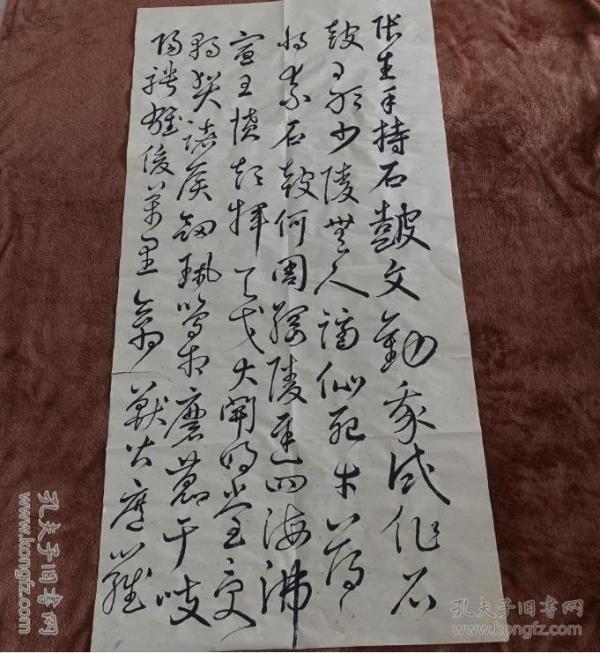 張生手持石鼓文勸我試作石
鼓歌少陵無人謫仙死才薄
將奈石鼓何周綱陵遲四海沸
宣王憤起揮天戈大開明堂受
朝賀諸侯劍珮鳴相磨蒐于岐
陽騁雄俊萬里禽獸皆遮羅
孔夫子旧书网
www.kongfz.com
孔夫子旧书网
www.kongfz.com